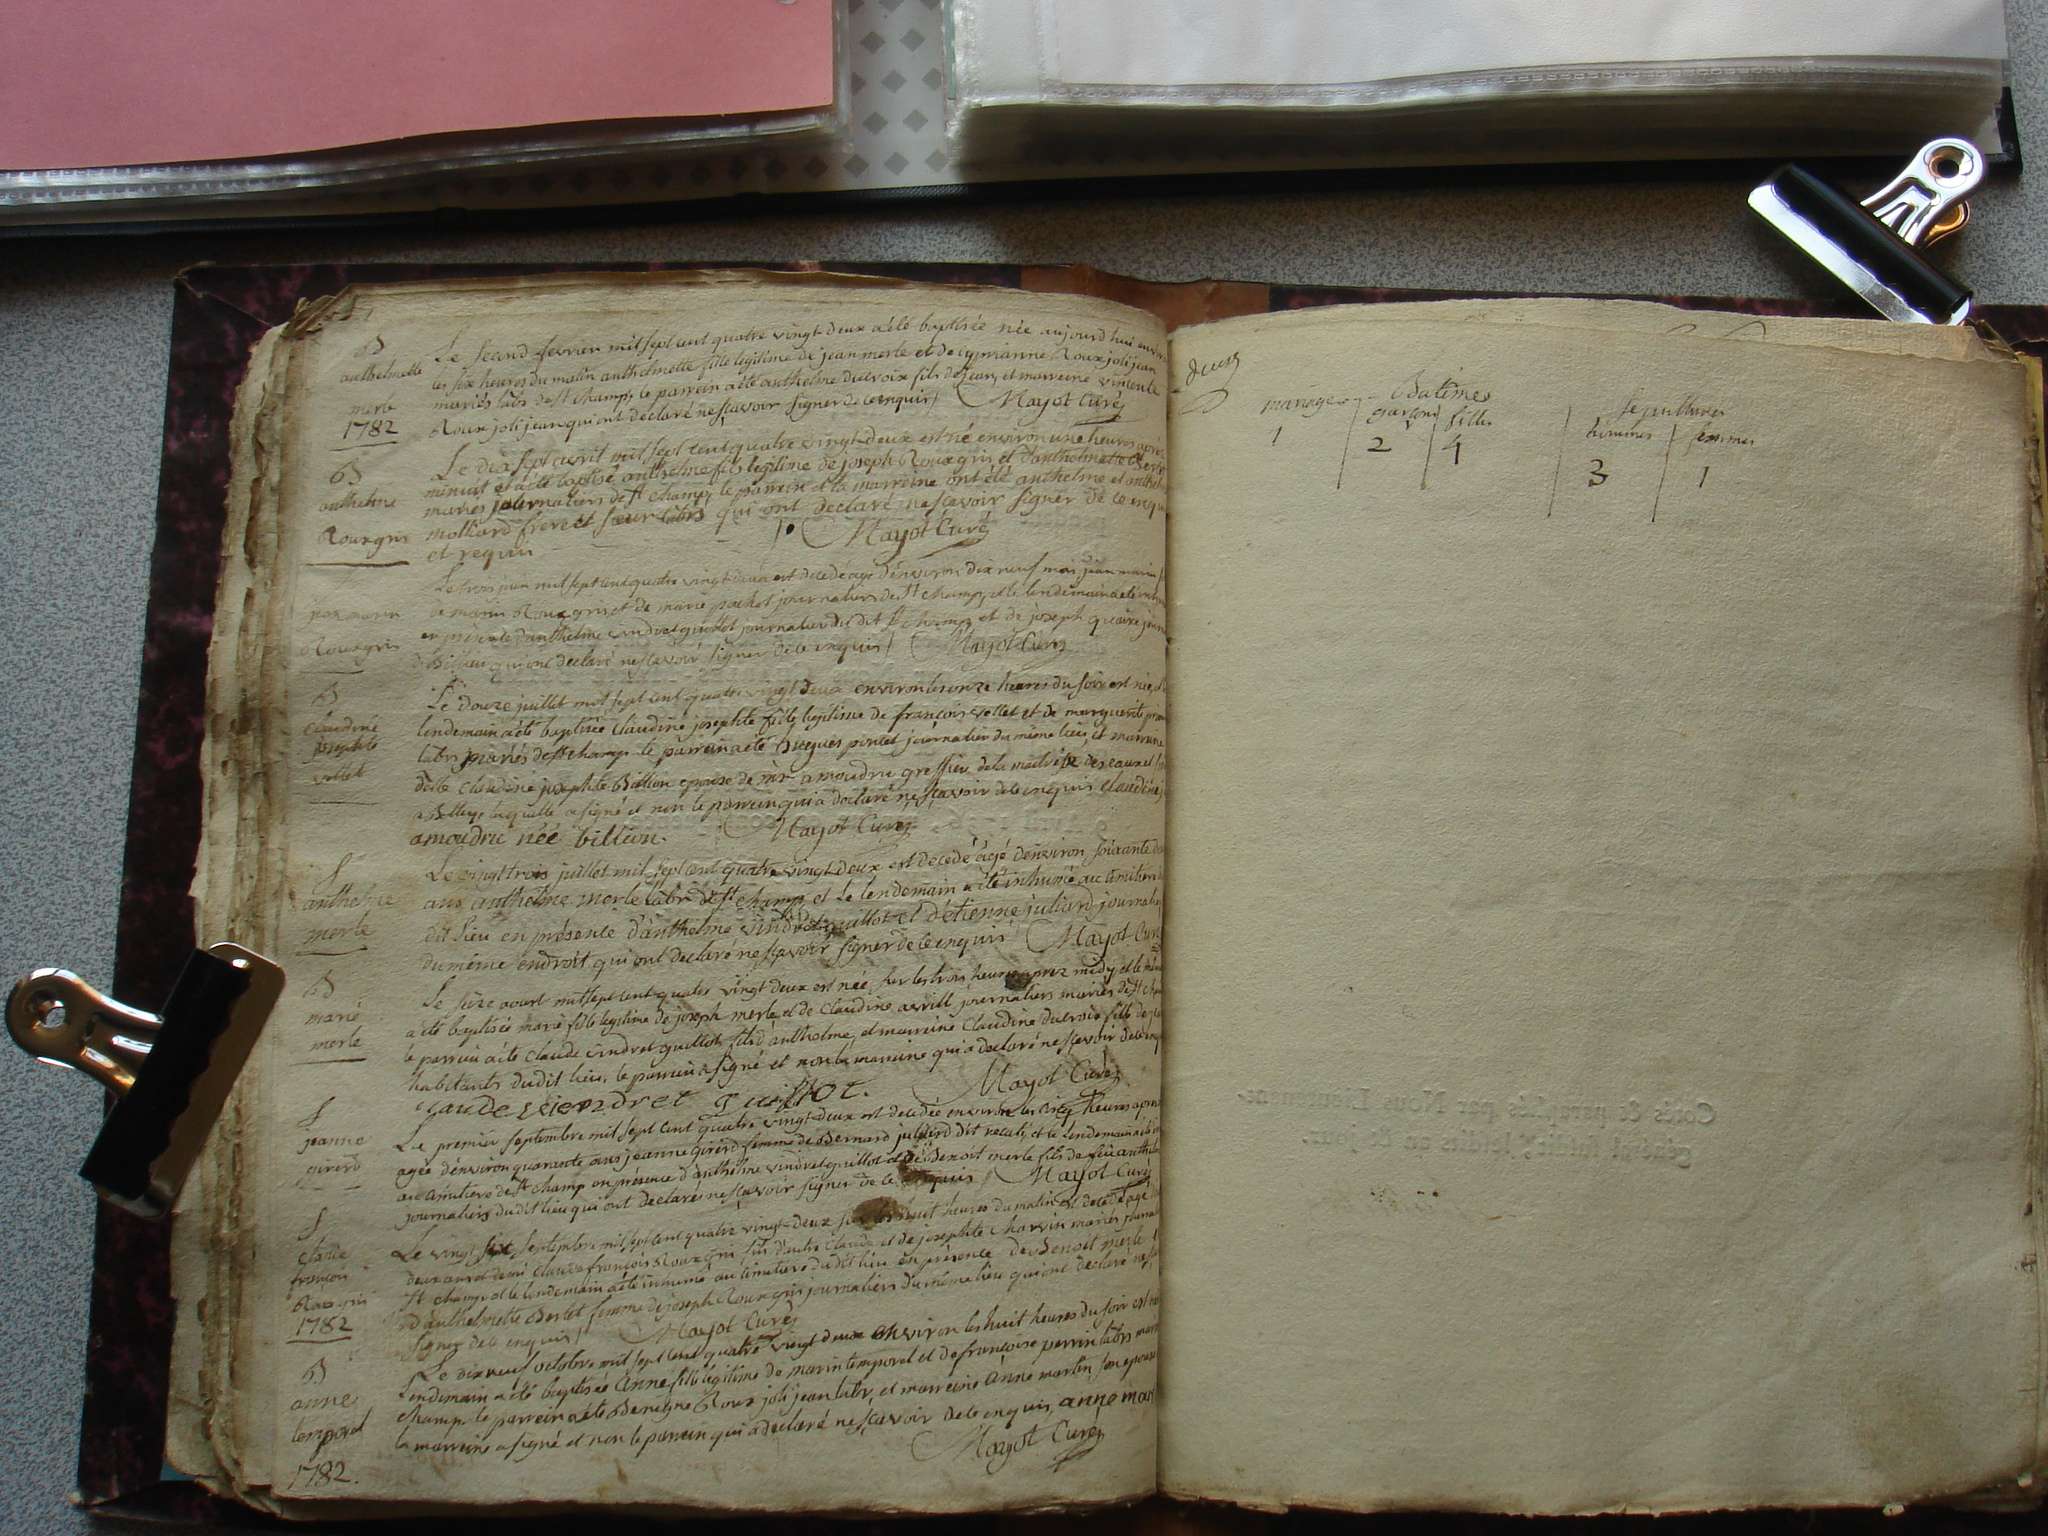 B
anthelmette
merle
1782
Le second fevrier mil sept cent quatre vingt deux a été baptisée née aujourd'hui environ
les six heures du matin anthelmette fille legitime de jean merle et de Roux joli jean
mariés labrs de st champ, le parrein a été anthelme ducroix fils de jean, et marreine vincente
Roux joli jean qui ont declaré ne scavoir signer de ce enquis / Mayot Curé
B
anthelme
Rouxgris
Le dix sept avril mil sept cent quatre vingt deux est né environ une heures après
minuit et a été baptisé anthelme fils legitime de joseph Roux gris et d'anthelmette Bertet
mariés journaliers de st champ, le parrein et la marreine ont été anthelme et anthelmette
molliard frere et sœur labrs qui ont declaré ne scavoir signer de ce enquis
et requis Mayot Curé
jean marin
Rouxgris
Le trois juin mil sept cent quatre vingt deux est decedé agé d'environ dix neuf mois jean marin
de marin Roux gris et de marie pochet journaliers de st champ, et le lendemain a été
en présence d'anthelme vindret quillot journalier du dit st champ et de joseph
qui ont declaré ne scavoir signer de ce enquis / Mayot Curé
B
claudine
josephte
vollet
Le douze juillet mil sept cent quatre vingt deux environ les onze heures du soir est née, et le
lendemain a été baptisée claudine josephte fille legitime de françois vollet et de marguerite
labrs mariés de st champ le parrein a été hugues pontet journalier du même lieu, et marreine
delle claudine josephte Billion epouse de mr amoudru greffier de la maîtrise des eaux et
a Belley laquelle a signé et non le parrein qui a declaré ne scavoir de ce enquis Claudine j
amoudru née billion. Mayot Curé
S
anthelme
merle
Le vingt trois juillet mil sept cent quatre vingt deux est decedé agé d'environ soixante
ans anthelme merle labr de st champ, et le lendemain a été inhumé au cimitiere du
dit lieu en présence d'anthelme vindret quillot et d'etienne juliard journaliers
du même endroit qui ont declaré ne scavoir signer de ce enquis / Mayot Curé
B
marie
merle
Le seize aoust mil sept cent quatre vingt deux est née sur les trois heures après midy et le même
a été baptisée marie fille legitime de joseph merle et de claudine avrill journaliers mariés de st champ
le parrein a été claude vindret quillot fils d'anthelme, et marreine claudine ducroix fille de
habitants du dit lieu, le parrein a signé et non la marreine qui a declaré ne scavoir de ce enquis
claude viendret quillot. Mayot Curé
S
jeanne
girerd
Le premier septembre mil sept cent quatre vingt deux est decedée environ les cinq heures après
agée d'environ quarante ans jeanne girerd femme de Bernard juliard dit et le lendemain a été
au cimitiere de st champ en présence d'anthelme vindret quillot et de Benoit merle fils de feu anthelme
journaliers du dit lieu qui ont declarés ne scavoir signer de ce enquis / Mayot Curé
S
claude
françois
Roux gris
1782
Le vingt six septembre mil sept cent quatre vingt deux sur les huit heures du matin est decedé agé
deux ans et demi claude françois Roux gris fils d'autre claude et de josephte charvin mariés journaliers
st champ et le lendemain a été inhumé au cimitiere du dit lieu en présence de Benoit merle
d'anthelmette Bertet femme de joseph Roux gris journaliers du même lieu qui ont declaré ne
signer de ce enquis / Mayot Curé
B
anne
temporal
1782.
Le dix neuf octobre mil sept cent quatre vingt deux environ les huit heures du soir est née
lendemain a été baptisée anne fille legitime de marin temporal et de françoise perrin labrs
champ, le parrein a été Benigne Roux joli jean labr, et marreine anne martin son epouse
la marreine a signé et non le parrein qui a declaré ne scavoir de ce enquis, anne mar
Mayot Curé
mariages Batêmes sepultures
garçons filles hommes femmes
1 2 4 3 1